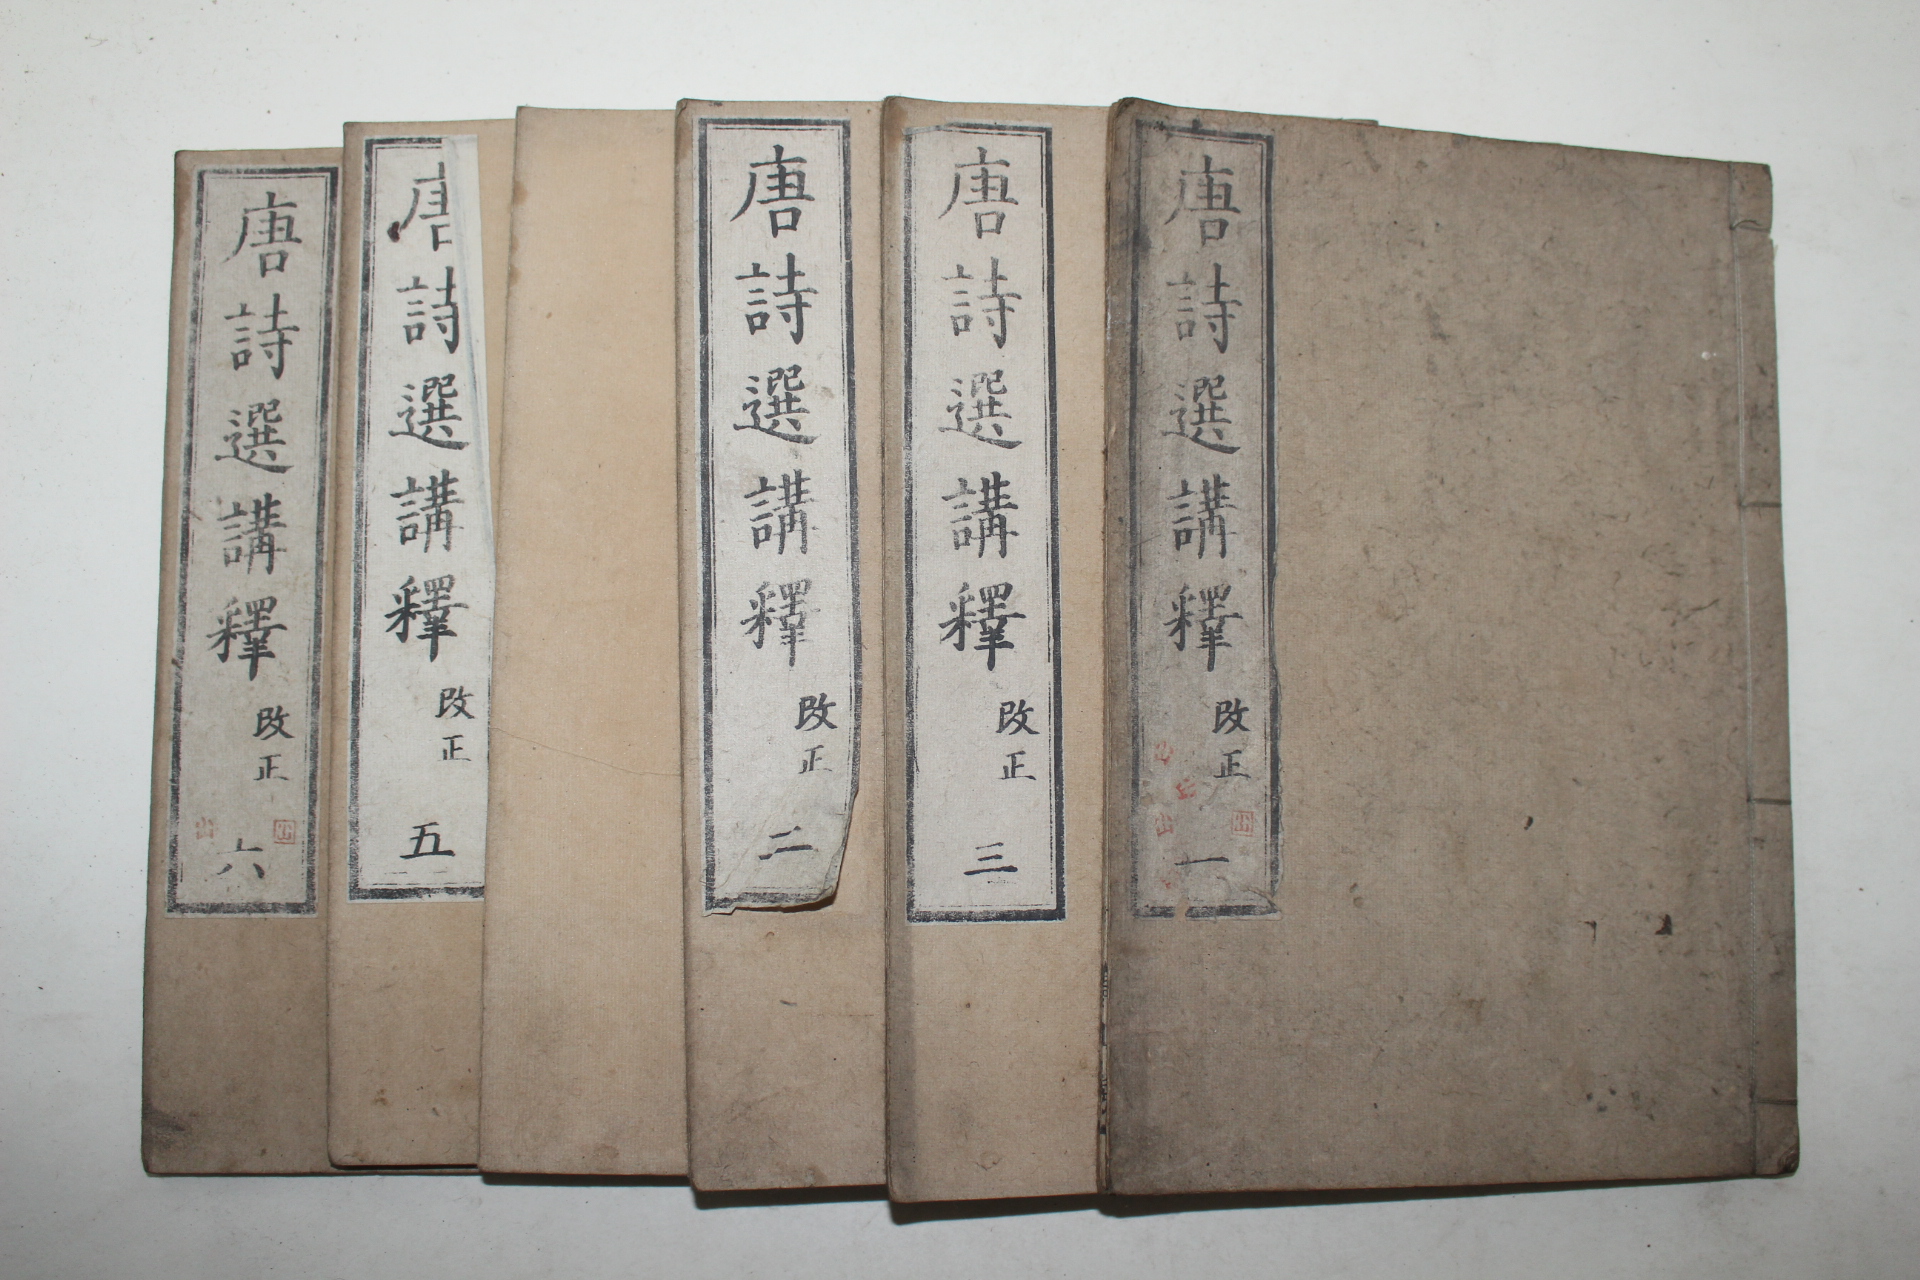 唐詩選講釋 改正 一
唐詩選講釋 改正 三
唐詩選講釋 改正 二
唐詩選講釋 改正 五
唐詩選講釋 改正 六